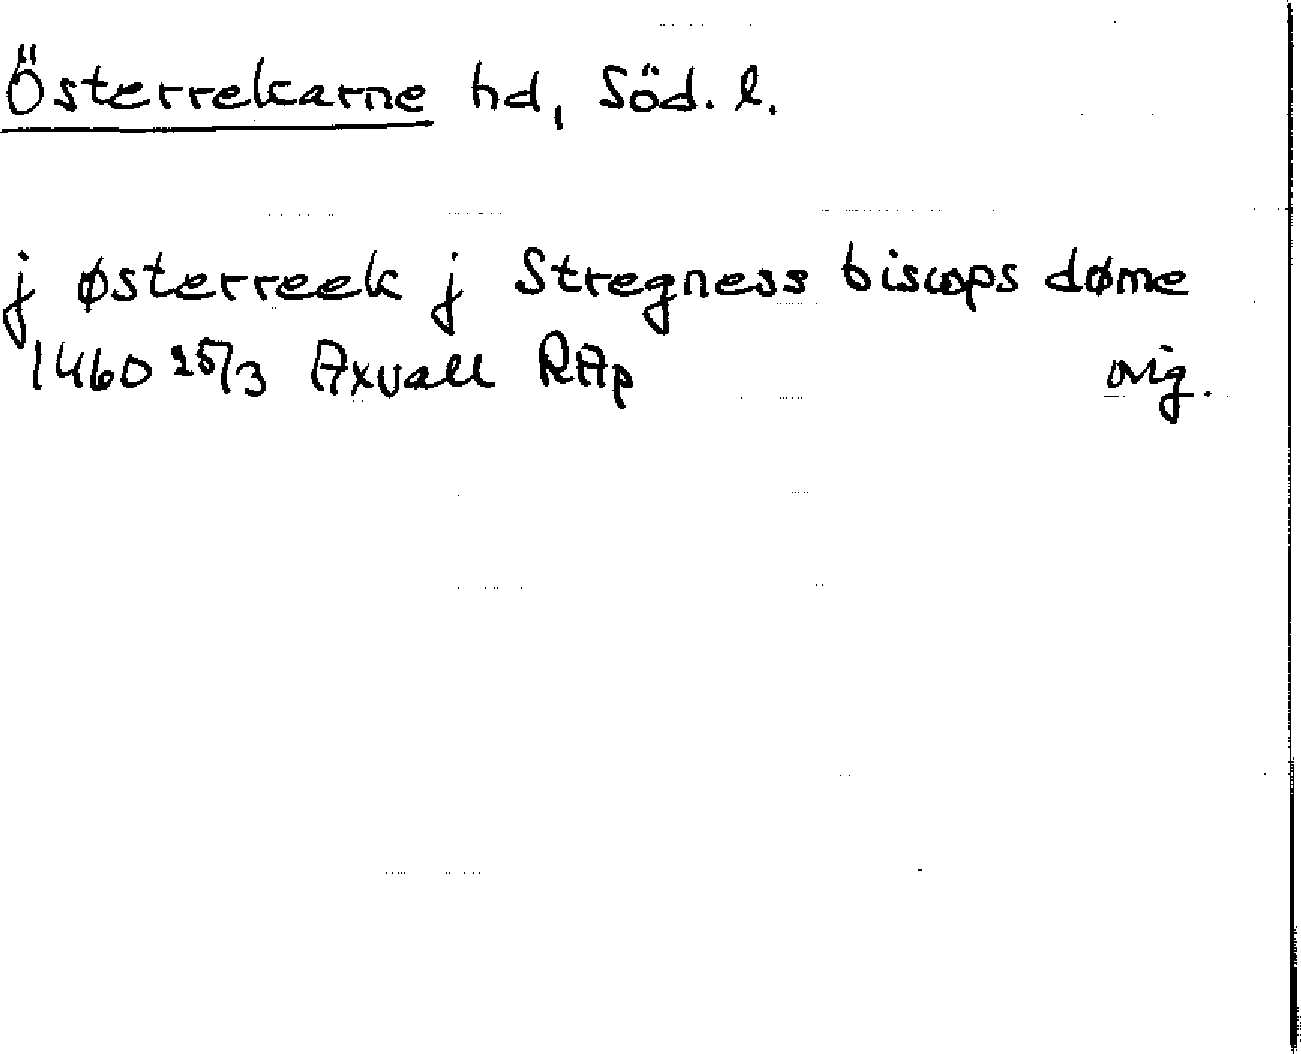 Österrekarne hd, Söd. l.
j østerreek j Stregness biscops døme
1460 25/3 Axvall RAp orig.